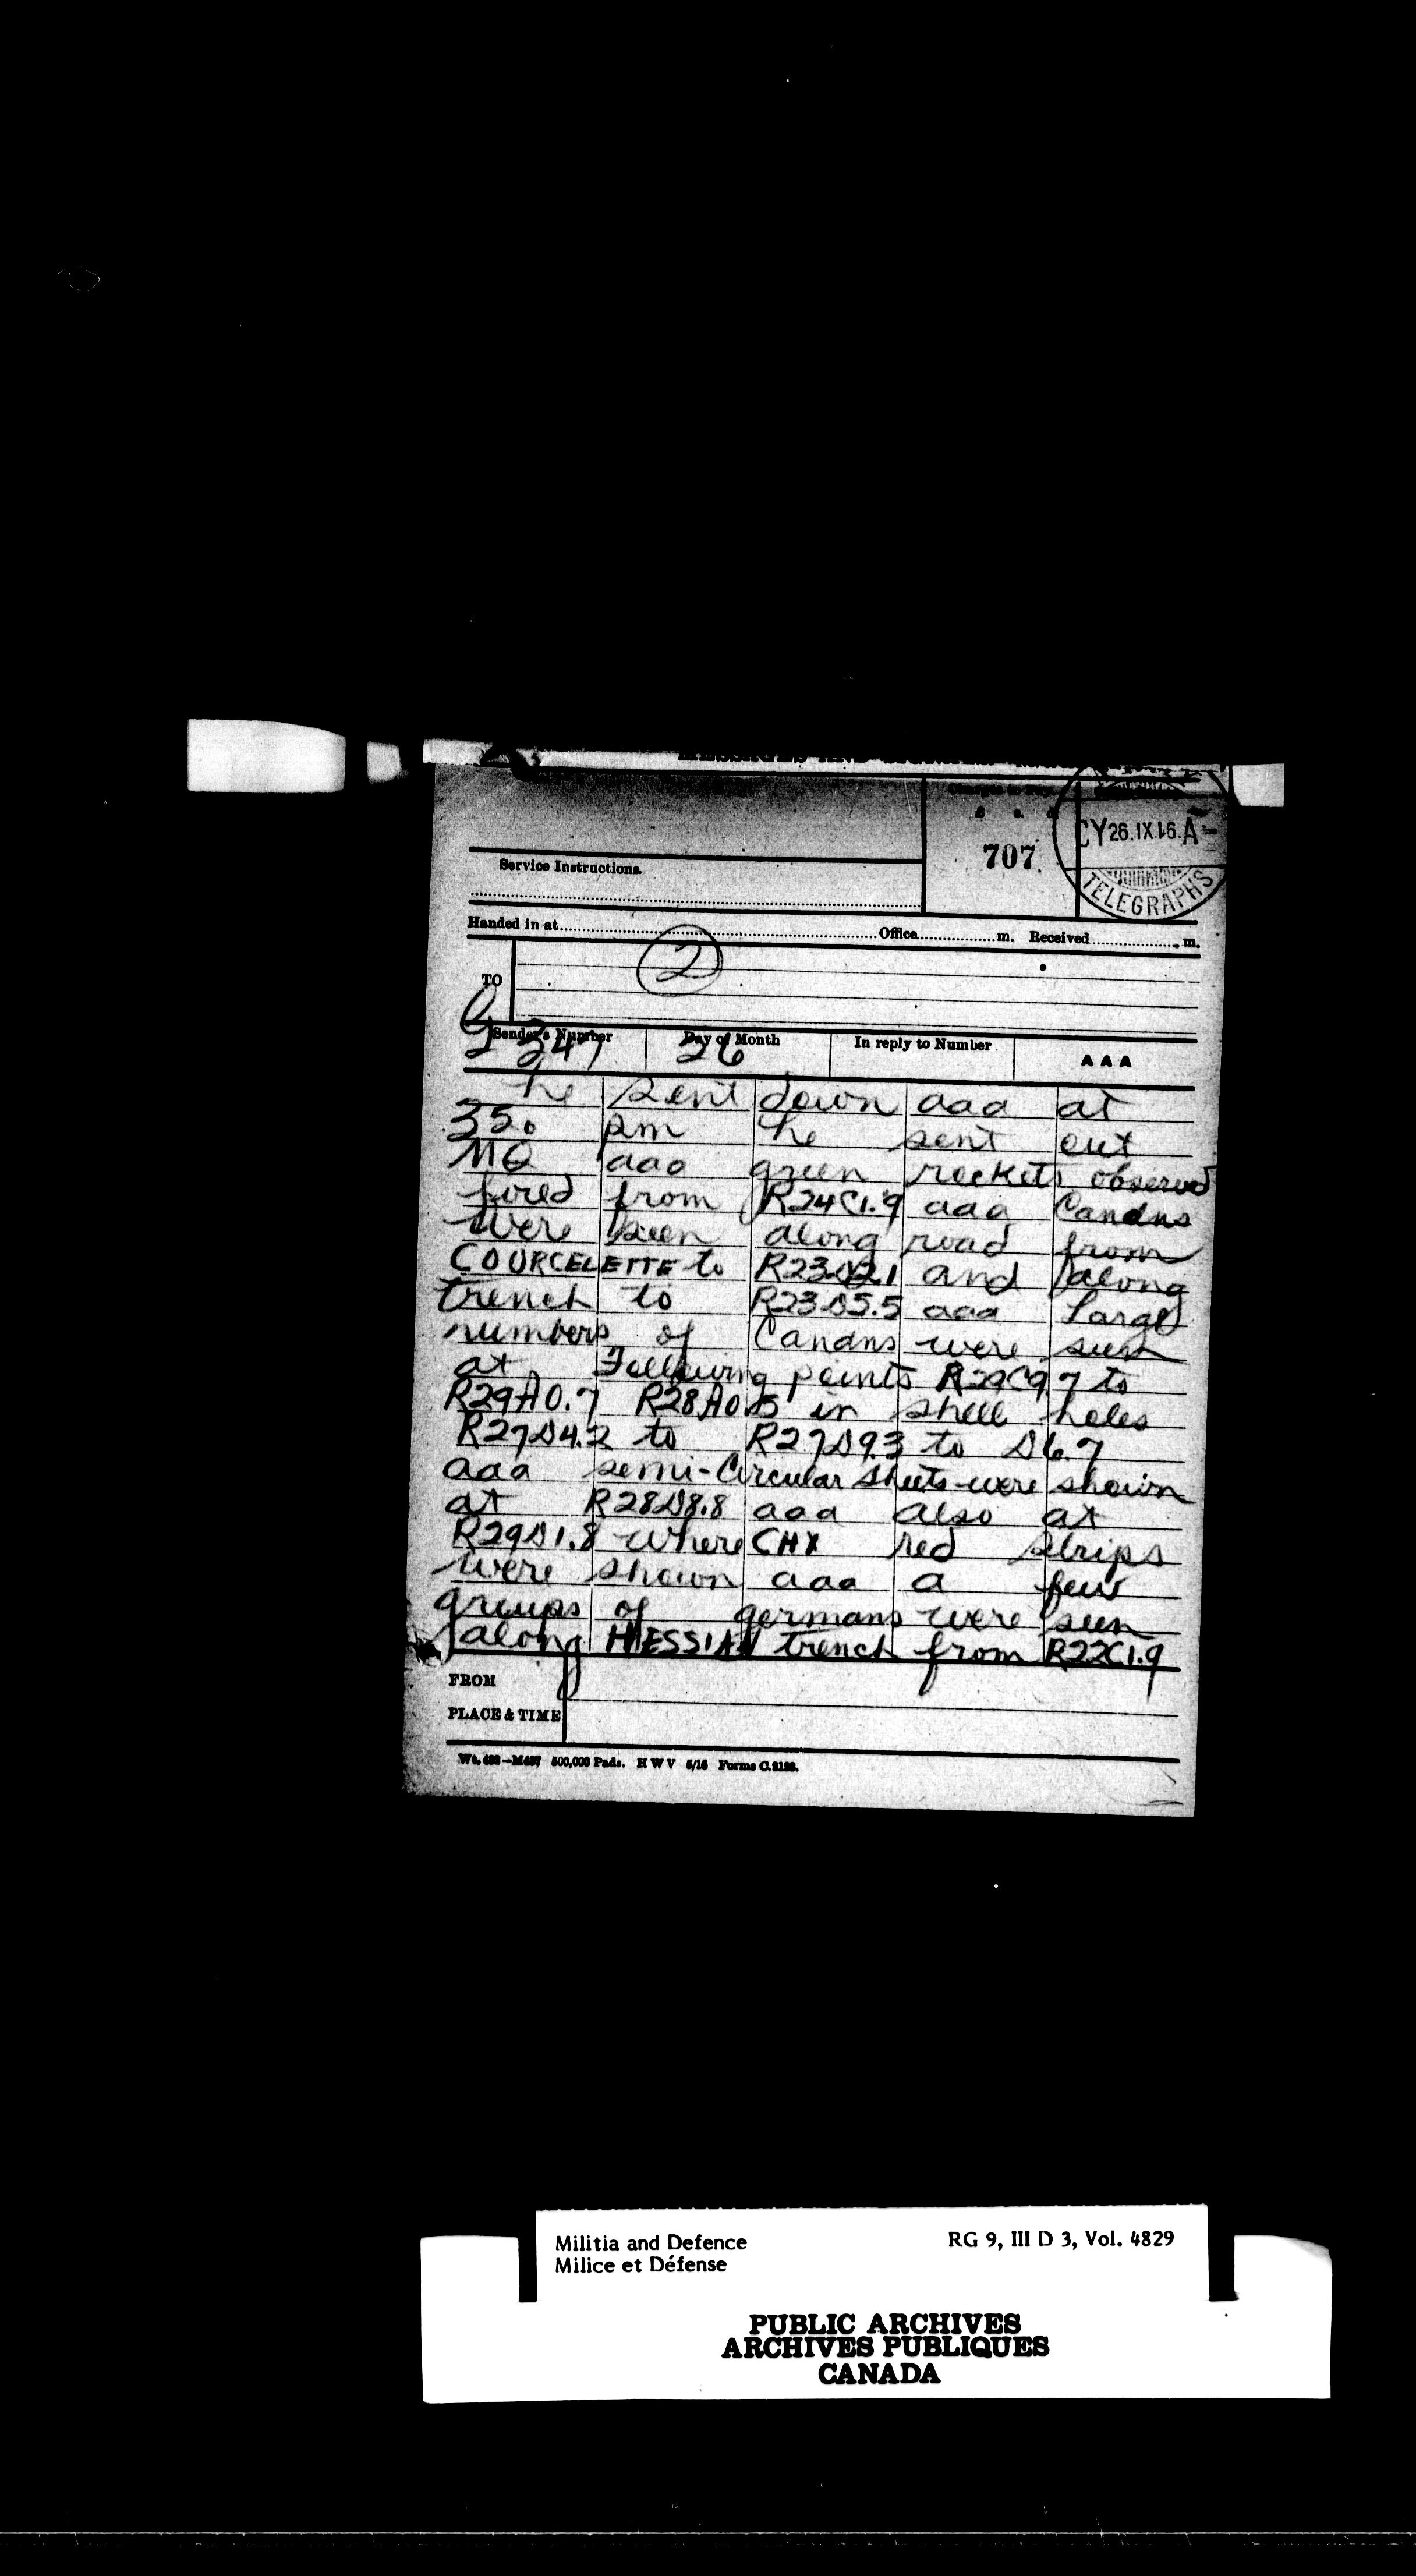 MESSAGES AND
Charges to
£ s. d.
707
CY 26.IX.16.A
TELEGRAPHS
Service Instructions.
Handed in at Office m. Received m.
2
TO
Sender's Number Day of Month In reply to Number AAA
G 247 26
he sent down aaa at
350 pm he sent out
MQ aaa green rockets observed
fired from R24C1.9 aaa Candns
were seen along road from
COURCELETTE to R23D2.1 and along
trench to R23D5.5 aaa Large
numbers of Candns were seen
at Following points R29C9 7 to
R29A0.7 R28A0.5 in shell holes
R27D4.2 to R27D9.3 to D6.7
aaa semi-Circular sheets were shown
at R28D8.8 aaa also at
R29D1.8 where CHX red strips
were shown aaa a few
groups of germans were seen
along HESSIAN trench from R22C1.9
FROM
PLACE & TIME
500,000 Pads. H W V 5/16 Forms
Militia and Defence RG 9, III D 3, Vol. 4829
Milice et Défense
PUBLIC ARCHIVES
ARCHIVES PUBLIQUES
CANADA